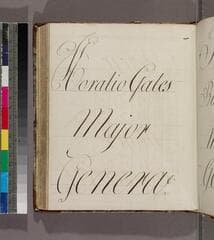 Horatio Gates
Major
General